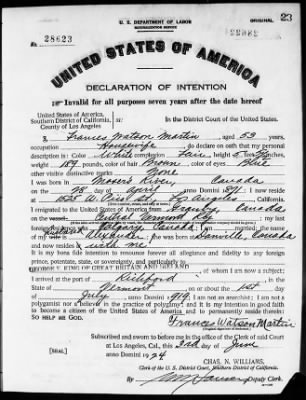 23
U. S. DEPARTMENT OF LABOR
NATURALIZATION SERVICE
ORIGINAL
No. 28623
UNITED STATES OF AMERICA
DECLARATION OF INTENTION
Invalid for all purposes seven years after the date hereof
United States of America,
Southern District of California,
County of Los Angeles
ss:
In the District Court of the United States.
I, Frances Watson Martin, aged 53 years,
occupation Housewife, do declare on oath that my personal
description is: Color White, complexion Fair, height 5 feet inches,
weight 189 pounds, color of hair Brown, color of eyes Blue
other visible distinctive marks None
I was born in Moser's River, Canada
on the day of April, anno Domini 1871; I now reside
at W. First St. Los Angeles, California.
I emigrated to the United States of America from Canada
on the vessel Vermont Ry; my last
foreign residence was Calgary Canada; I am married; the name
of my is Alexander; was born at Canada
and now resides with me
It is my bona fide intention to renounce forever all allegiance and fidelity to any foreign
prince, potentate, state, or sovereignty, and particularly to
GEORGE V, KING OF GREAT BRITAIN AND IRELAND, of whom I am now a subject;
I arrived at the port of Richford, in the
State of Vermont, on or about the 1st day
of July, anno Domini 1919; I am not an anarchist; I am not a
polygamist nor a believer in the practice of polygamy; and it is my intention in good faith
to become a citizen of the United States of America and to permanently reside therein:
SO HELP ME GOD.
Frances Watson Martin
Subscribed and sworn to before me in the office of the Clerk of said Court
at Los Angeles, Cal., this 2nd day of June
anno Domini 1924
[SEAL]
CHAS. N. WILLIAMS,
Clerk of the U. S. District Court, Southern District of California.
By Deputy Clerk.